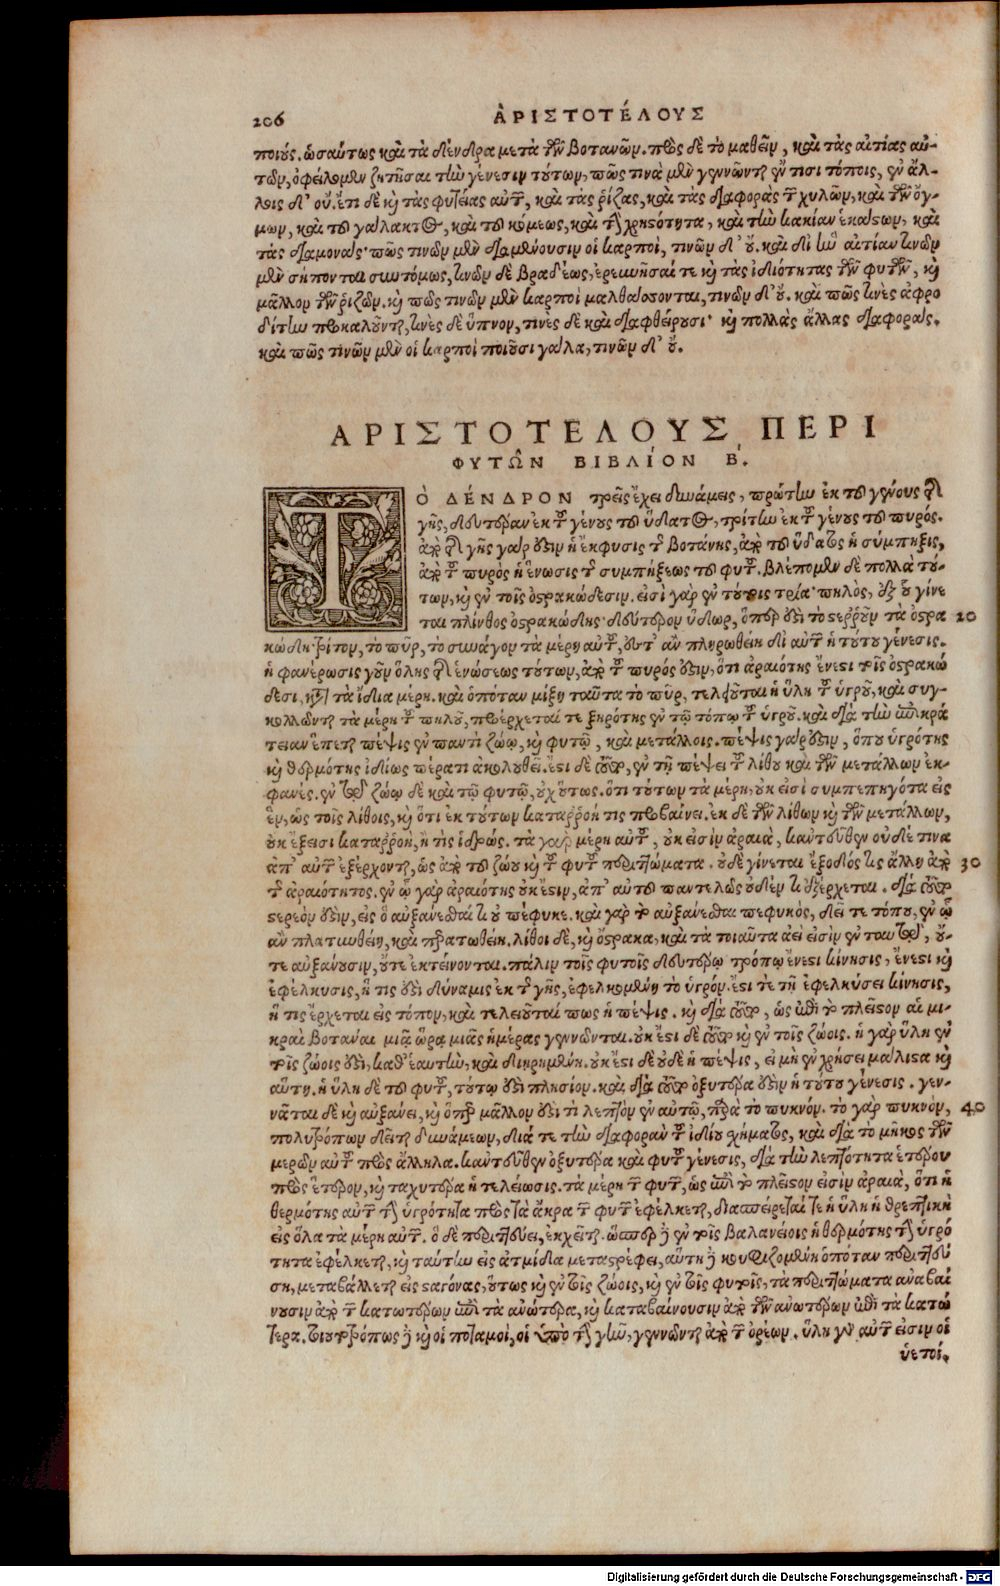 206 ἈΡΙΣΤΟΤΈΛΟΥΣ
ποιούς. ὡσαύτως καὶ τὰ δένδρα μετὰ τῶν βοτανῶν. πρὸς δὲ τὸ μαθεῖν, καὶ τὰς αἰτίας αὐ-
τῶν, ὀφείλομεν ζητῆσαι τὴν γένεσιν τούτων, πῶς τινὰ μὲν γεννῶνται ἔν τισι τόποις, ἐν ἄλ-
λοις δ' οὔ. ἔτι δὲ καὶ τὰς φυτείας αὐτῶν, καὶ τὰς ῥίζας, καὶ τὰς διαφορὰς τῶν χυλῶν, καὶ τῶν ὄγ-
μων, καὶ τοῦ γάλακτος, καὶ τοῦ κόμεως, καὶ τὴν χρηστότητα, καὶ τὴν κακίαν ἑκάστων, καὶ
τὰς διαμονάς· πῶς τινῶν μὲν διαμένουσιν οἱ καρποὶ, τινῶν δ' οὔ. καὶ δι' ἣν αἰτίαν τινῶν
μὲν σήπονται συντόμως, τινῶν δὲ βραδέως, ἐρευνῆσαί τε καὶ τὰς ἰδιότητας τῶν φυτῶν, καὶ
μᾶλλον τῶν ῥιζῶν. καὶ πῶς τινῶν μὲν καρποὶ μαλθάσσονται, τινῶν δ' οὔ. καὶ πῶς τινὲς ἀφρο
δίτην προκαλοῦνται, τινὲς δὲ ὕπνον, τινὲς δὲ καὶ διαφθείρουσι· καὶ πολλὰς ἄλλας διαφοράς.
καὶ πῶς τινῶν μὲν οἱ καρποὶ ποιοῦσι γάλα, τινῶν δ' οὔ.
ΑΡΙΣΤΟΤΕΛΟΥΣ ΠΕΡΙ
ΦΥΤΩ͂Ν ΒΙΒΛΊΟΝ Β΄.
ΤΟ ΔΈΝΔΡΟΝ τρεῖς ἔχει δυνάμεις, πρώτην ἐκ τοῦ γένους τῆς
γῆς, δευτέραν ἐκ τοῦ γένους τοῦ ὕδατος, τρίτην ἐκ τοῦ γένους τοῦ πυρός.
ἀπὸ τῆς γῆς γάρ ἐστιν ἡ ἔκφυσις τῆς βοτάνης, ἀπὸ τοῦ ὕδατος ἡ σύμπηξις,
ἀπὸ τοῦ πυρὸς ἡ ἕνωσις τῆς συμπήξεως τοῦ φυτοῦ. βλέπομεν δὲ πολλὰ τού-
των, καὶ ἐν τοῖς ὀστρακώδεσιν. εἰσὶ γὰρ ἐν τούτοις τρία· πηλὸς, ἐξ οὗ γίνε
ται πλίνθος ὀστρακώδης· δεύτερον ὕδωρ, ὅπερ ἐστὶ τὸ στερροῦν τὰ ὀστρα 20
κώδη· τρίτον, τὸ πῦρ, τὸ συνάγον τὰ μέρη αὐτοῦ, ἔστ' ἂν πληρωθείη δι' αὐτοῦ ἡ τούτου γένεσις.
ἡ φανέρωσις γοῦν ὅλης τῆς ἑνώσεως τούτων, ἀπὸ τοῦ πυρός ἐστιν, ὅτι ἀραιότης ἔνεστι τοῖς ὀστρακώ
δεσι, κατὰ τὰ ἴδια μέρη. καὶ ὁπόταν μίξῃ ταῦτα τὸ πῦρ, τελευτᾶται ἡ ὕλη τοῦ ὑγροῦ, καὶ συγ-
κολλῶνται τὰ μέρη τοῦ πηλοῦ, προέρχεταί τε ξηρότης ἐν τῷ τόπῳ τοῦ ὑγροῦ. καὶ διὰ τὴν ἐπικρά
τειαν ἕπεται πέψις ἐν παντὶ ζώῳ, καὶ φυτῷ, καὶ μετάλλοις. πέψις γάρ ἐστιν, ὅπου ὑγρότης
καὶ θερμότης ἰδίως πέρατι ἀκολουθεῖ. ἔστι δὲ τοῦτο, ἐν τῇ πέψει τοῦ λίθου καὶ τῶν μετάλλων ἐκ-
φανές. ἐν τῷ ζώῳ δὲ καὶ τῷ φυτῷ, οὐχ οὕτως. ὅτι τούτων τὰ μέρη, οὐκ εἰσὶ συμπεπηγότα εἰς
ἓν, ὡς τοῖς λίθοις, καὶ ὅτι ἐκ τούτων καταρροή τις προβαίνει. ἐκ δὲ τῶν λίθων καὶ τῶν μετάλλων,
οὐκ ἔξεισι καταρροὴ, ἤ τις ἱδρώς. τὰ γὰρ μέρη αὐτοῦ, οὐκ εἰσὶν ἀραιὰ, κἀντεῦθεν οὐδέ τινα
ἀπ' αὐτοῦ ἐξέρχονται, ὡς ἀπὸ τοῦ ζώου καὶ τοῦ φυτοῦ περιττώματα. οὐδὲ γίνεται ἔξοδός τις ἄλλη ἀπὸ 30
τῆς ἀραιότητος. ἐν ᾧ γὰρ ἀραιότης οὐκ ἔστιν, ἀπ' αὐτοῦ παντελῶς οὐδέν τι ἐξέρχεται. διὰ τοῦτο
στερεόν ἐστιν, εἰς ὃ αὐξάνεσθαί τι οὐ πέφυκε. καὶ γὰρ τὸ αὐξάνεσθαι πεφυκὸς, δεῖταί τε τόπου, ἐν ᾧ
ἂν πλατυνθείη, καὶ παρατωθείη. λίθοι δὲ, καὶ ὄστρακα, καὶ τὰ τοιαῦτα ἀεί εἰσιν ἐν ταυτῷ, οὔ-
τε αὐξάνουσιν, οὔτε ἐκτείνονται. πάλιν τοῖς φυτοῖς δευτέρῳ τρόπῳ ἔνεστι κίνησις, ἔνεστι καὶ
ἐφέλκυσις, ἥ τις ἐστὶ δύναμις ἐκ τῆς γῆς, ἐφελκομένη τὸ ὑγρόν. ἔστι τε τῇ ἐφελκύσει κίνησις,
ἥ τις ἔρχεται εἰς τόπον, καὶ τελευτᾶταί πως ἡ πέψις. καὶ διὰ τοῦτο, ὡς ἐπὶ τὸ πλεῖστον αἱ μι-
κραὶ βοτάναι μιᾷ ὥρᾳ μιᾶς ἡμέρας γεννῶνται. οὐκ ἔστι δὲ τοῦτο καὶ ἐν τοῖς ζώοις. ἡ γὰρ ὕλη ἐν
τοῖς ζώοις ἐστὶ, καθ' ἑαυτὴν, καὶ διῃρημένη. οὐκ ἔστι δὲ οὐδὲ ἡ πέψις, εἰ μὴ ἐν χρήσει μάλιστα καὶ
αὕτη. ἡ ὕλη δὲ τοῦ φυτοῦ, τούτῳ ἐστὶ πλησίον. καὶ διὰ τοῦτο ὀξυτέρα ἐστὶν ἡ τούτου γένεσις. γεν-
νᾶται δὲ καὶ αὐξάνει, καὶ ὅπερ μᾶλλον ἐστί τι λεπτὸν ἐν αὐτῷ, παρὰ τὸ πυκνόν. τὸ γὰρ πυκνὸν, 40
πολυτρόπων δεῖται δυνάμεων, διά τε τὴν διαφορὰν τοῦ ἰδίου σχήματος, καὶ διὰ τὸ μῆκος τῶν
μερῶν αὐτοῦ πρὸς ἄλληλα. κἀντεῦθεν ὀξυτέρα καὶ φυτοῦ γένεσις, διὰ τὴν λεπτότητα ἑτέρου
πρὸς ἕτερον, καὶ ταχυτέρα ἡ τελείωσις. τὰ μέρη τῶν φυτῶν, ὡς ἐπὶ τὸ πλεῖστον εἰσὶν ἀραιὰ, ὅτι ἡ
θερμότης αὐτῶν τὴν ὑγρότητα πρὸς τὰ ἄκρα τῶν φυτῶν ἐφέλκεται, διασπείρεταί τε ἡ ὕλη ἡ θρεπτικὴ
εἰς ὅλα τὰ μέρη αὐτῶν. ὃ δὲ περιττεύει, ἐκχεῖται. ὥσπερ γὰρ ἐν τοῖς βαλανείοις ἡ θερμότης τὴν ὑγρό
τητα ἐφέλκεται, καὶ ταύτην εἰς ἀτμίδα μεταστρέφει, αὕτη γὰρ κουφιζομένη ὁπόταν περιττεύ
ση, μεταβάλλεται εἰς σταγόνας, οὕτως καὶ ἐν τοῖς ζώοις, καὶ ἐν τοῖς φυτοῖς, τὰ περιττώματα ἀναβαί
νουσιν ἀπὸ τῶν κατωτέρων ἐπὶ τὰ ἀνώτερα, καὶ καταβαίνουσιν ἀπὸ τῶν ἀνωτέρων ἐπὶ τὰ κατώ
τερα. τοιουτρόπως γὰρ καὶ οἱ ποταμοὶ, οἱ ὑπὸ τὴν γῆν, γεννῶνται ἀπὸ τῶν ὀρέων. ὕλη γὰρ αὐτῶν εἰσιν οἱ
ὑετοί.
Digitalisierung gefördert durch die Deutsche Forschungsgemeinschaft - DFG